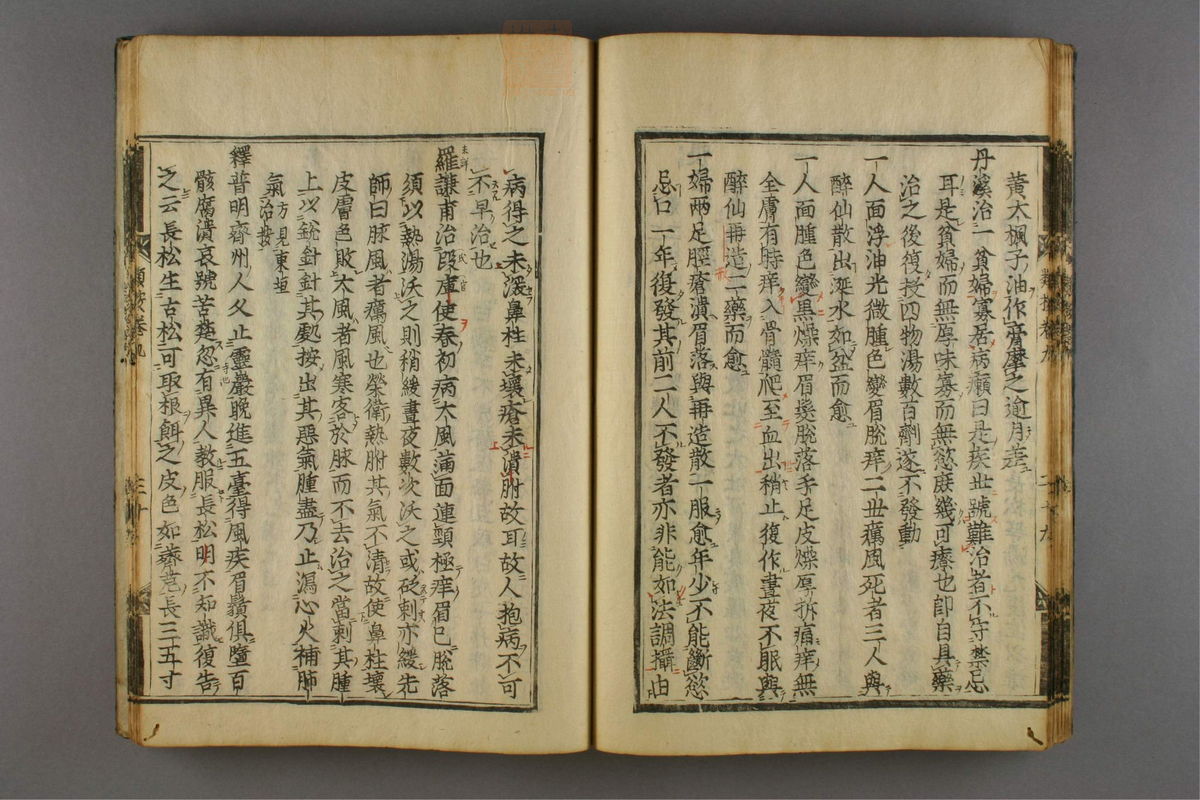 黄大楓子油作膏摩之逾月差
丹溪治一貧婦寡居病癩曰是疾世號難治者不守禁忌
耳是貧婦而無厚味寡而無慾庶幾可療也即自具藥
治之後復投四物湯數百劑遂不發動
一人面浮油光微腫色變眉脫痒二世癘風死者三人與
醉仙散出涎水如盆而愈
一人面腫色變黒燥痒眉髮脫落手足皮燥厚拆痛痒無
全膚有時痒入骨髓爬至血出稍止復作晝夜不眠與
醉仙再造二藥而愈
一婦兩足脛瘡潰眉落與再造散一服愈年少不能斷慾
忌口一年復發其前二人不發者亦非能如法調攝由
病得之未深鼻柱未壞瘡未潰胕故耳故人抱病不可
不早治也
羅謙甫治段庫使春初病大風滿面連頸極痒眉已脫落
須以熱湯沃之則稍緩晝夜數次沃之或砭刺亦緩先
師曰脉風者癘風也榮衛熱胕其氣不清故使鼻柱壞
皮膚色敗大風者風寒客於脉而不去治之當刺其腫
上以銳針針其處按出其惡氣腫盡乃止瀉心火補肺
氣治投方見東垣
釋普明齊州人久止靈巖晚進五臺得風疾眉鬚俱墮百
骸腐潰哀號苦楚忽有異人教服長松明不知識復告
之云長松生古松下可取根餌之皮色如薺苨長三五寸
類按卷九
二十九
類按卷九
三十